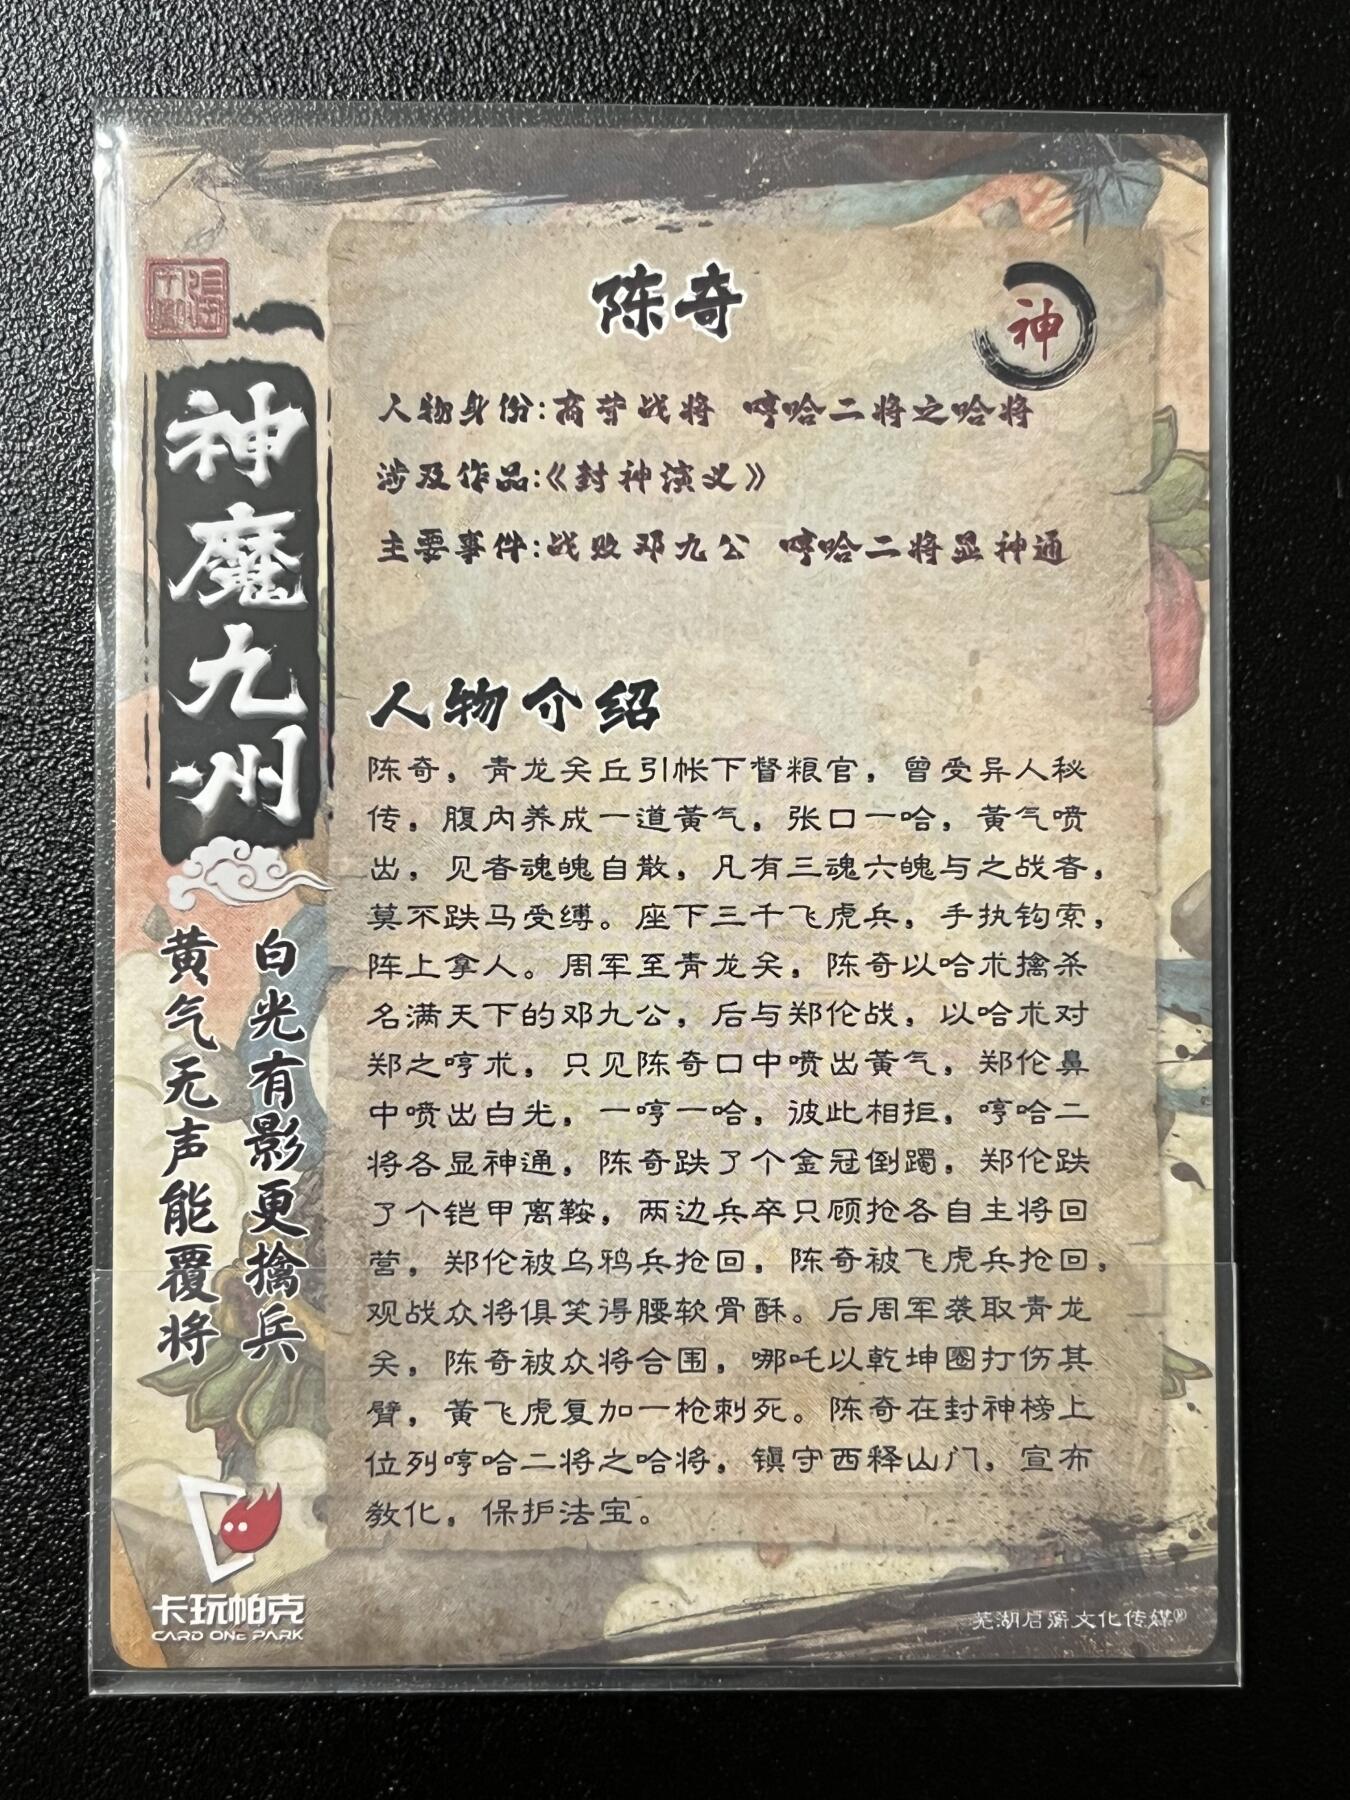 陈奇
神
人物身份:商营战将 哼哈二将之哈将
涉及作品:《封神演义》
主要事件:战败邓九公 哼哈二将显神通
人物介绍
陈奇，青龙关丘引帐下督粮官，曾受异人秘
传，腹内养成一道黄气，张口一哈，黄气喷
出，见者魂魄自散，凡有三魂六魄与之战者，
莫不跌马受缚。座下三千飞虎兵，手执钩索，
阵上拿人。周军至青龙关，陈奇以哈术擒杀
名满天下的邓九公，后与郑伦战，以哈术对
郑之哼术，只见陈奇口中喷出黄气，郑伦鼻
中喷出白光，一哼一哈，彼此相拒，哼哈二
将各显神通，陈奇跌了个金冠倒躅，郑伦跌
了个铠甲离鞍，两边兵卒只顾抢各自主将回
营，郑伦被乌鸦兵抢回，陈奇被飞虎兵抢回，
观战众将俱笑得腰软骨酥。后周军袭取青龙
关，陈奇被众将合围，哪吒以乾坤圈打伤其
臂，黄飞虎复加一枪刺死。陈奇在封神榜上
位列哼哈二将之哈将，镇守西释山门，宣布
教化，保护法宝。
神魔九州
白光有影更擒兵
黄气无声能覆将
卡玩帕克
CARD ONE PARK
芜湖启蒲文化传媒®